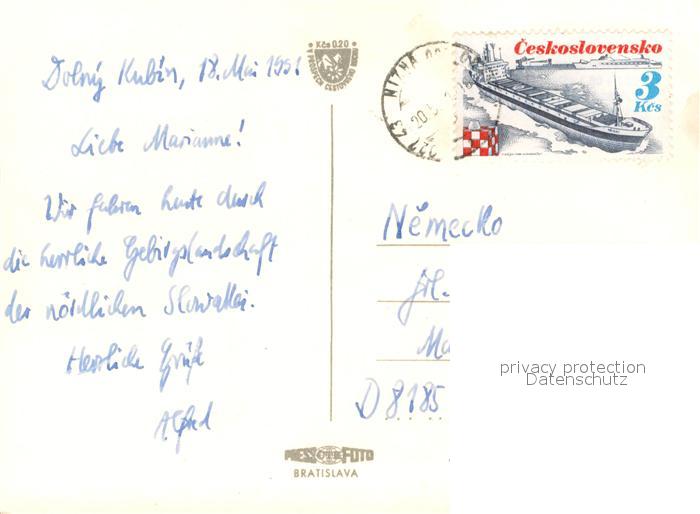 Dolný Kubín, 18. Mai 1991
Liebe Marianne!
Wir fahren heute durch
die herrliche Gebirgslandschaft
der nördlichen Slowakei.
Herzliche Grüße
Alfred
Kčs 0.20
Československo
3
Kčs
NIŽNÁ
Německo
Frl.
Ma
D 8185
privacy protection
Datenschutz
PRESSFOTO
BRATISLAVA